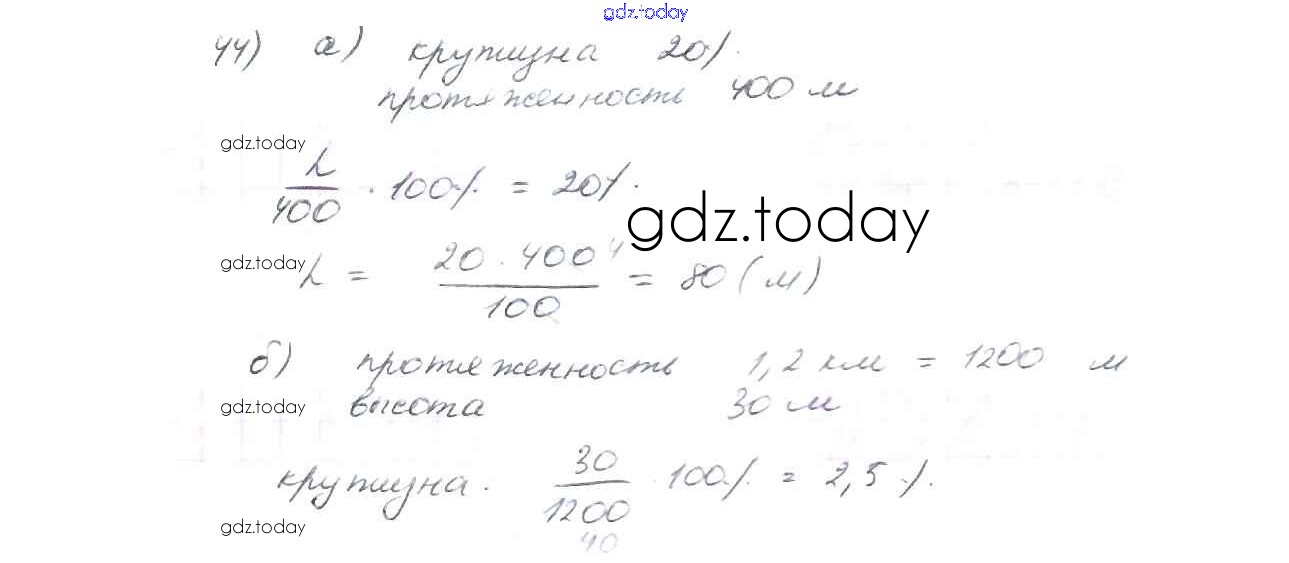 gdz.today
44) а) крутизна 20%.
протяженность 400 м
gdz.today
h/400 · 100% = 20%.
gdz.today
gdz.today
h = 20 · 400 4/100 = 80 (м)
б) протяженность 1,2 км = 1200 м
gdz.today
высота 30 м
крутизна. 30/1200 · 100% = 2,5%.
40
gdz.today